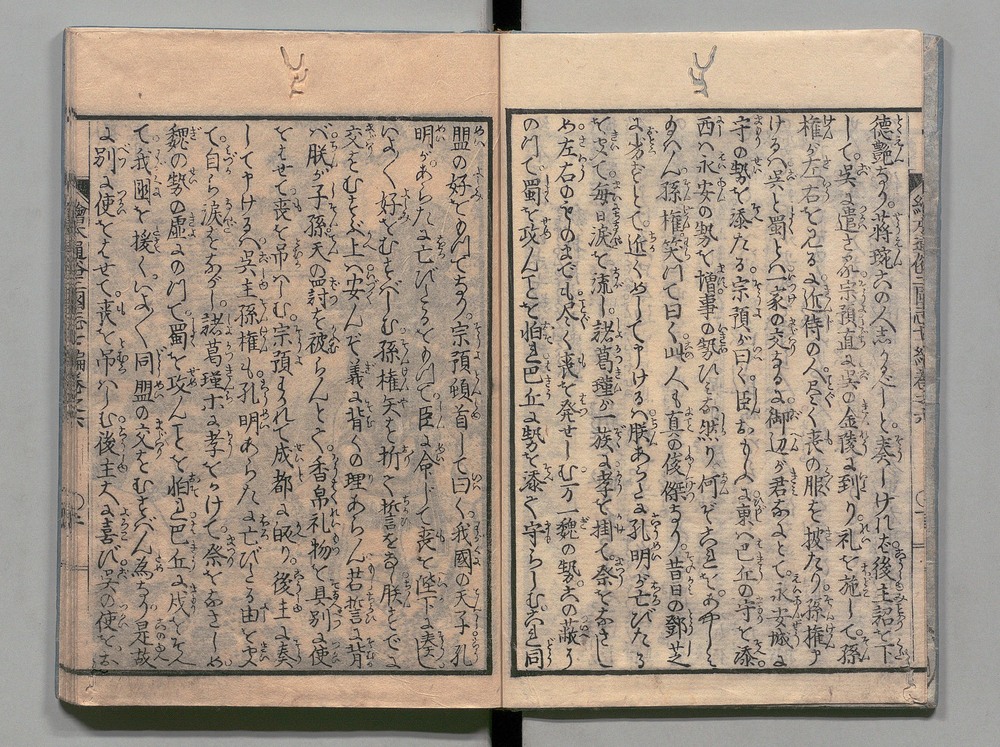 徳艶なり。蒋琬六の人志かるべしと奏しければ後主詔を下
して呉に遣さる宗預直に呉の金陵に到り礼を施して孫
権が左右をみるに近侍の人尽く喪の服を披たり孫権
けるハ呉と蜀とハ一家の交するに御辺が君なにとて永安城に
守の勢を添たる宗預が曰く臣おもふに東ハ巴丘の守を添
西ハ永安の勢を増事の勢ひミな然り何ぞ
孫権笑て曰く此人も真の俊傑なり昔日の鄧芝
に劣ずとて近くめして申けるハ朕あらたに孔明が亡びたる
をきいて毎日涙を流し諸葛瑾が一族に孝を掛て祭をなさし
め左右のものまでも尽く喪を発せしむ万一魏の勢この蔽
の門て蜀を攻んことを怕れ巴丘に勢を添て守らしむこれ同
盟の好をもつてなり宗預頓首して曰く我國の天子孔
明があらたに亡びたるをもつて臣に命じて喪を陛下に奏し
いよく好をむすべしむ孫権矢を折て誓をなし朕すでに
交をむすぶ上ハ安んぞ義に背くの理あらん若誓に背
バ朕が子孫天の罰を被らんとて香帛礼物を具別に使
をはせて喪を吊ハしむ宗預われて成都に皈り後主に奏
して申けるハ呉主孫権も孔明あらたに亡びたる由をきい
て自ら涙をながし諸葛瑾ホに孝をかけて祭をなさしめ
魏の勢の虚にのつて蜀を攻んことを怕れ巴丘に戍をそへ
て我國を援くいよく同盟の交をむすべん為なり是故
に別に使をはせて喪を吊ハしむ後主大に喜び呉の使を
繪本通俗三國志七編巻之六